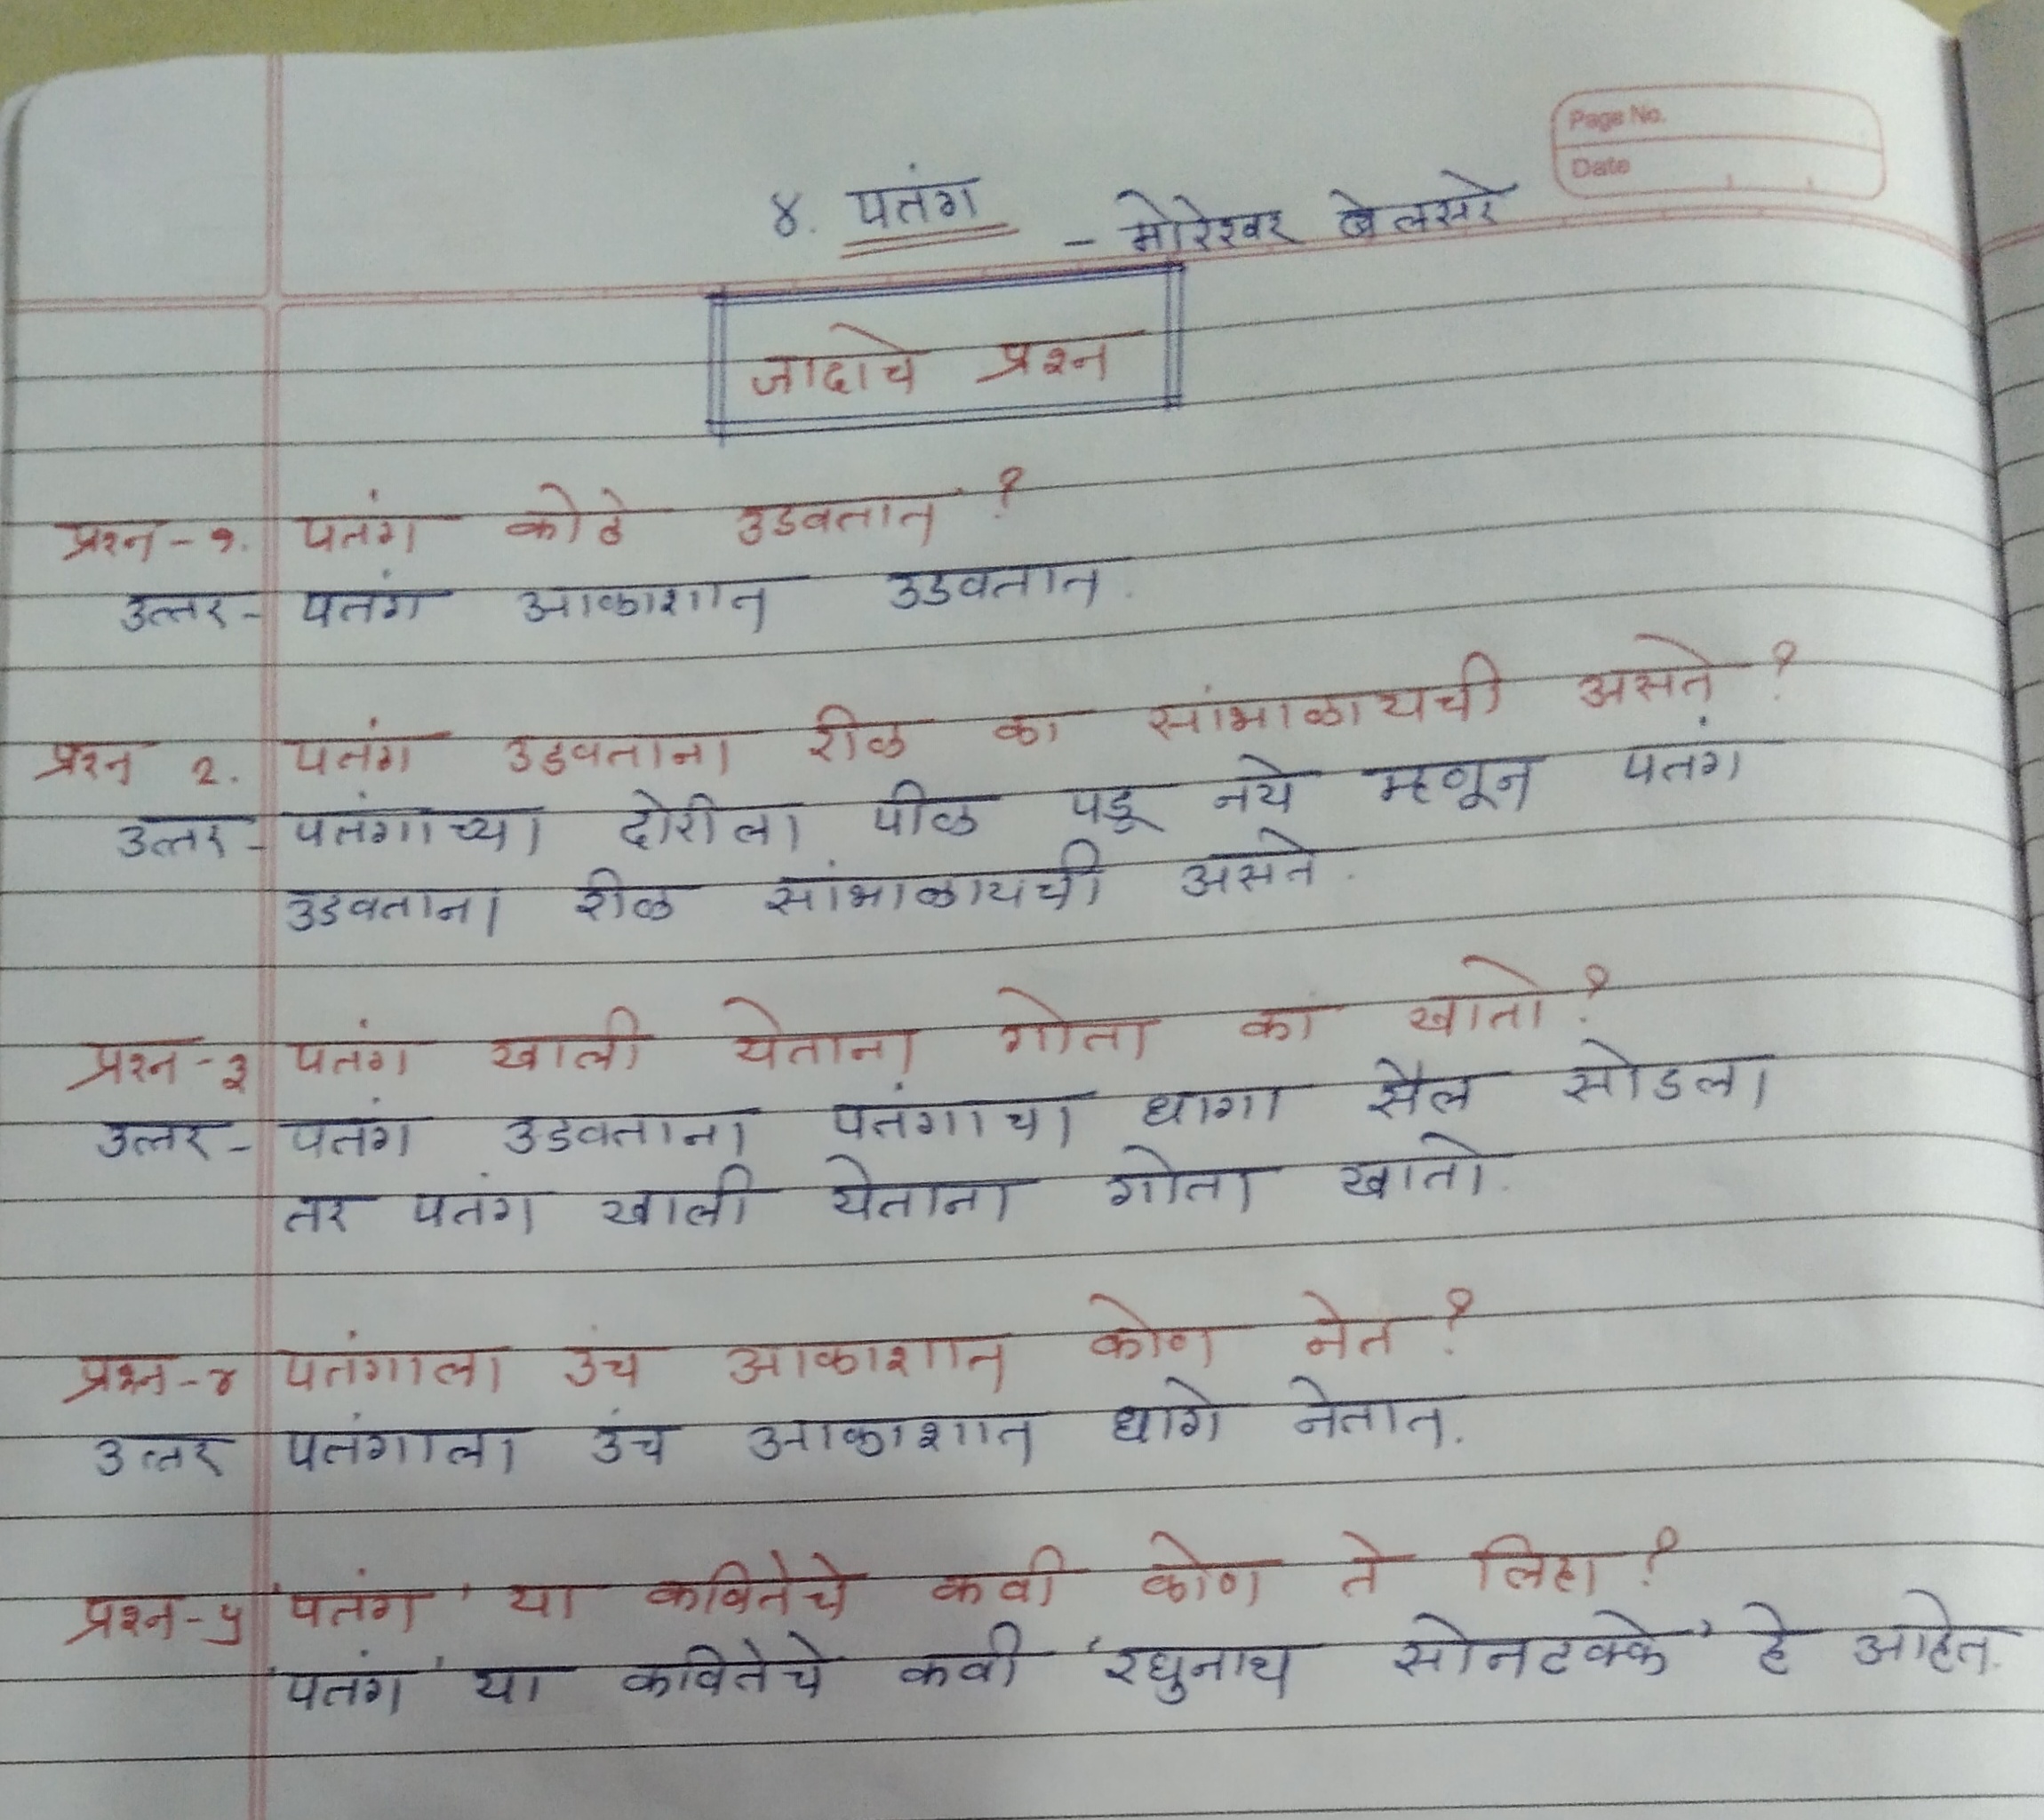 Page No.
Date
४. पतंग
- मोरेश्वर बेलसरे
जादाचे प्रश्न
प्रश्न - १. पतंग कोठे उडवतात ?
उत्तर - पतंग आकाशात उडवतात.
प्रश्न २. पतंग उडवताना रीळ का सांभाळायची असते ?
उत्तर - पतंगाच्या दोरीला पीळ पडू नये म्हणून पतंग
उडवताना रीळ सांभाळायची असते.
प्रश्न - ३ पतंग खाली येताना गोता का खातो ?
उत्तर - पतंग उडवताना पतंगाचा धागा सैल सोडला
तर पतंग खाली येताना गोता खातो.
प्रश्न - ४ पतंगाला उंच आकाशात कोण नेत ?
उत्तर पतंगाला उंच आकाशात धागे नेतात.
प्रश्न - ५ 'पतंग' या कवितेचे कवी कोण ते लिहा ?
'पतंग' या कवितेचे कवी 'रघुनाथ सोनटक्के' हे आहेत.